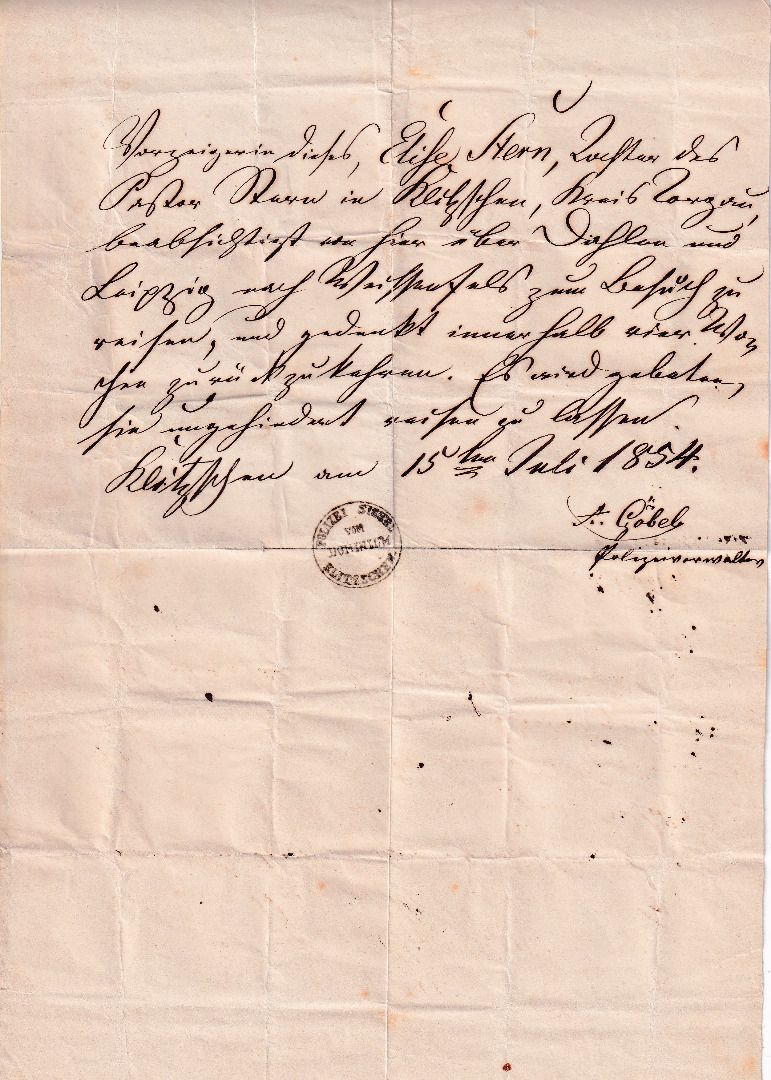 Vorzeigerin dieses, Elise Stern, Tochter des
Pastor Stern in Klitzschen, Kreis Torgau,
beabsichtigt von hier über Dahlen und
Leipzig nach Weissenfels zum Besuch zu
reisen, und gedenkt innerhalb vier Wo-
chen zurückzukehren. Es wird gebeten,
sie ungehindert reisen zu lassen.
Klitzschen am 15ten Juli 1854.
A. Göbel
Polizeiverwalter
POLIZEI SIEGEL
VOM
DOMINIUM
KLITZSCHEN